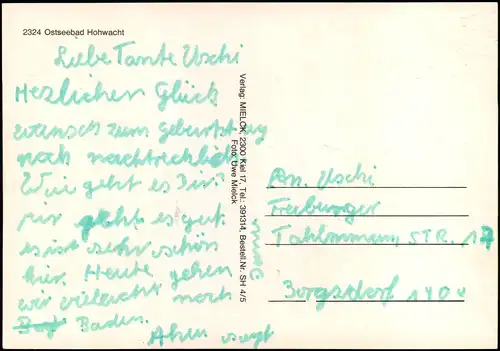 2324 Ostseebad Hohwacht
Liebe Tante Uschi
Hezlichen Glück
wunsch zum geburtstag
noch nachtrechlich
Wie geht es Dir?
mir geht es gut.
es ist sehr schön
hier. Heute gehen
wir vieleicht noch
Baden.
Verlag: MIELCK, 2300 Kiel 17, Tel.: 391314, Bestell.Nr. SH 4/5
Foto: Uwe Mielck
An. Uschi
Freiburger
STR. 17
Borgsdorf 1404